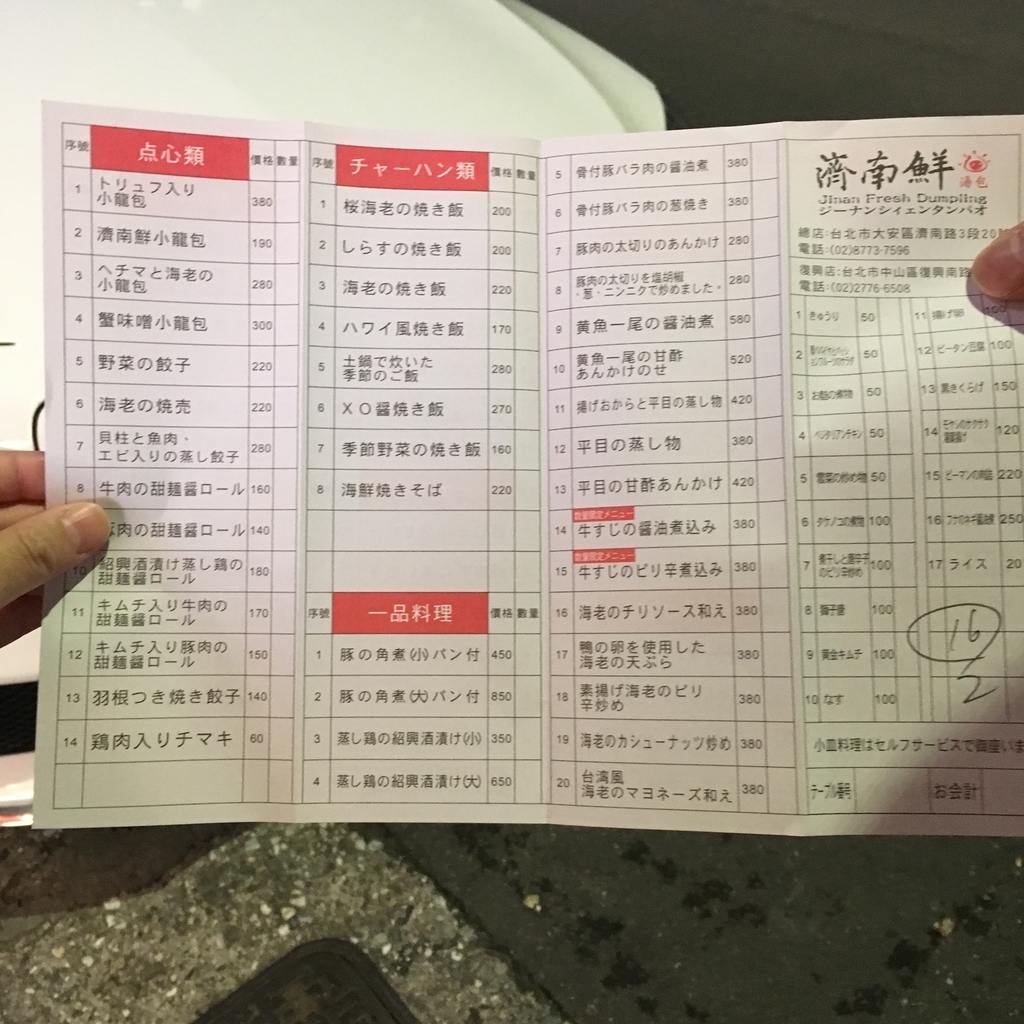 序號 点心類 價格 數量
1 トリュフ入り
小龍包 380
2 濟南鮮小龍包 190
3 ヘチマと海老の
小龍包 280
4 蟹味噌小龍包 300
5 野菜の餃子 220
6 海老の焼売 220
7 貝柱と魚肉、
エビ入りの蒸し餃子 280
8 牛肉の甜麺醤ロール 160
豚肉の甜麺醤ロール 140
10 紹興酒漬け蒸し鶏の
甜麺醤ロール 180
11 キムチ入り牛肉の
甜麺醤ロール 170
12 キムチ入り豚肉の
甜麺醤ロール 150
13 羽根つき焼き餃子 140
14 鶏肉入りチマキ 60
序號 チャーハン類 價格 數量
1 桜海老の焼き飯 200
2 しらすの焼き飯 200
3 海老の焼き飯 220
4 ハワイ風焼き飯 170
5 土鍋で炊いた
季節のご飯 280
6 XO醤焼き飯 270
7 季節野菜の焼き飯 160
8 海鮮焼きそば 220
序號 一品料理 價格 數量
1 豚の角煮(小)パン付 450
2 豚の角煮(大)パン付 850
3 蒸し鶏の紹興酒漬け(小) 350
4 蒸し鶏の紹興酒漬け(大) 650
5 骨付豚バラ肉の醤油煮 380
6 骨付豚バラ肉の葱焼き 380
7 豚肉の太切りのあんかけ 280
8 豚肉の太切を塩胡椒
・葱・ニンニクで炒めました。 280
9 黄魚一尾の醤油煮 580
10 黄魚一尾の甘酢
あんかけのせ 520
11 揚げおからと平目の蒸し物 420
12 平目の蒸し物 380
13 平目の甘酢あんかけ 420
数量限定メニュー
14 牛すじの醤油煮込み 380
数量限定メニュー
15 牛すじのピリ辛煮込み 380
16 海老のチリソース和え 380
17 鴨の卵を使用した
海老の天ぷら 380
18 素揚げ海老のピリ
辛炒め 380
19 海老のカシューナッツ炒め 380
20 台湾風
海老のマヨネーズ和え 380
濟南鮮 湯包
Jinan Fresh Dumpling
ジーナンシィェンタンパオ
總店:台北市大安區濟南路3段20
電話:(02)8773-7596
復興店:台北市中山區復興南路
電話:(02)2776-6508
1 きゅうり 50
2 50
3 お麩の煮物 50
4 ベジタリアンチキン 50
5 雪菜の炒め物 50
6 タケノコの煮物 100
7 煮干しと唐辛子
のピリ辛炒め 100
8 獅子唐 100
9 黄金キムチ 100
10 なす 100
11 揚げ卵 100
12 ピータン豆腐 100
13 黒きくらげ 150
14 モヤシのサクサク
120
15 ピーマンの肉詰 220
16 フナのネギ醤油煮 250
17 ライス 20
16
2
小皿料理はセルフサービスで御座いま
テーブル番号 お会計